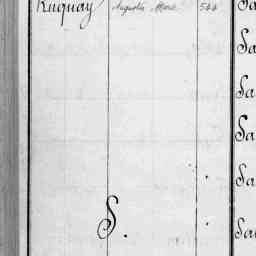 Ruquay Augustin Marie 544
S.
Sa
Sa
Sa
Sa
Sa
Sau